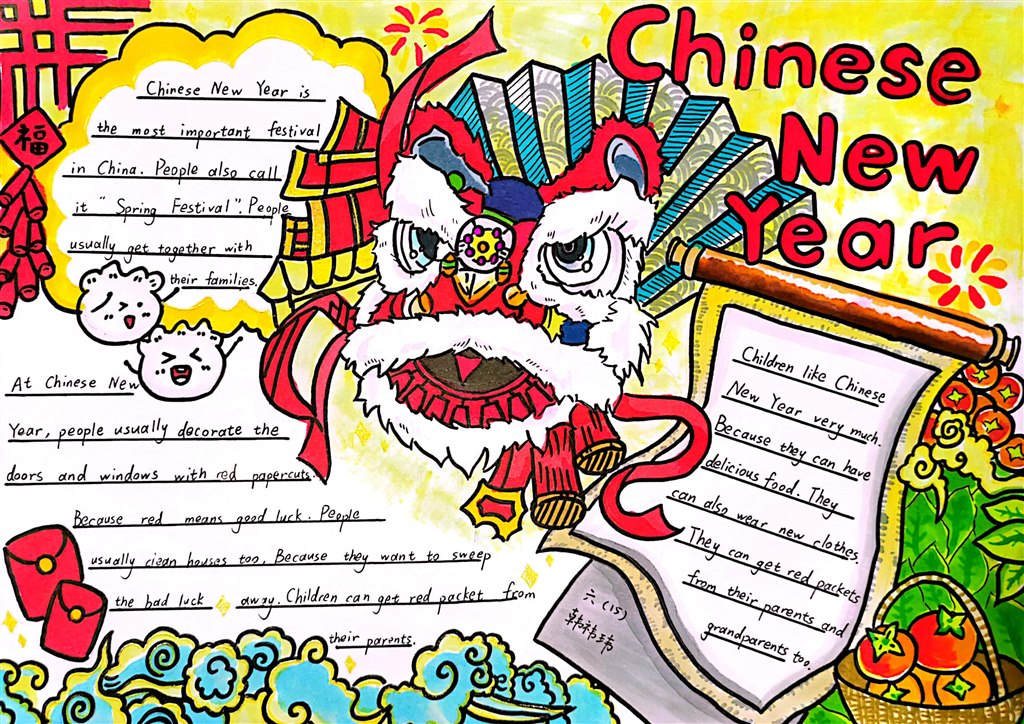 Chinese
New
Year
福
Chinese New Year is
the most important festival
in China. People also call
it "Spring Festival". People
usually get together with
their families.
At Chinese New
Year, people usually decorate the
doors and windows with red papercuts.
Because red means good luck. People
usually clean houses too, Because they want to sweep
the bad luck away. Children can get red packet from
their parents.
Children like Chinese
New Year very much.
Because they can have
delicious food. They
can also wear new clothes.
They can get red packets
from their parents and
grandparents too.
六(15)